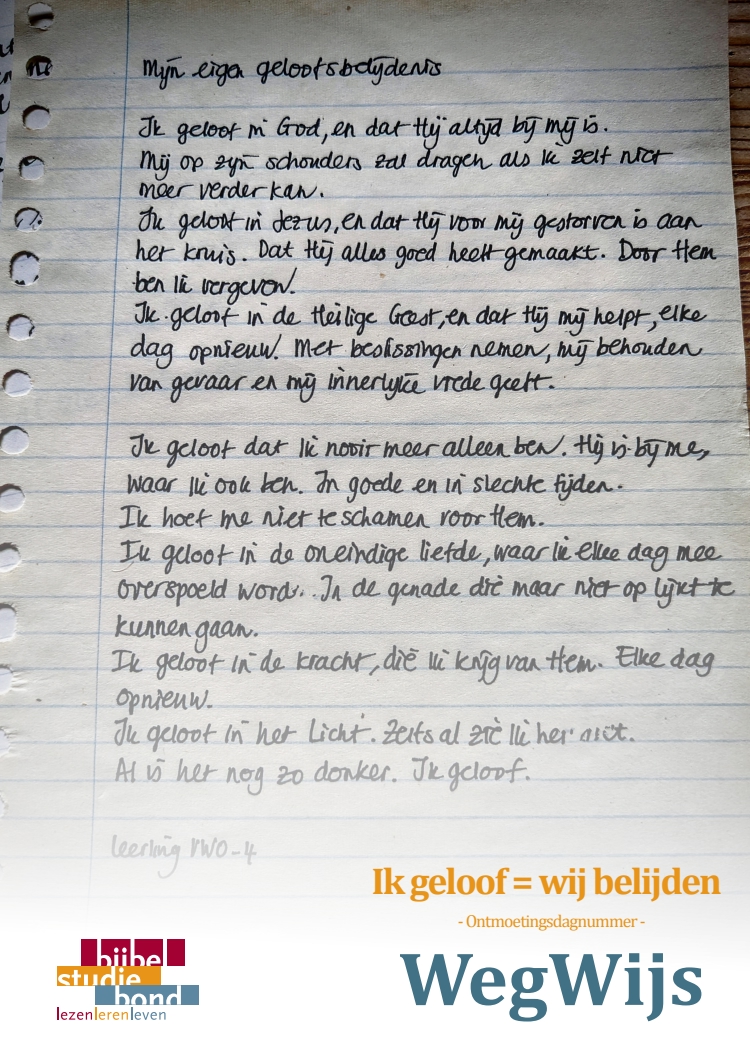 Mijn eigen geloofsbelijdenis
Ik geloof in God, en dat Hij altijd bij mij is.
Mij op zijn schouders zal dragen als ik zelf niet
meer verder kan.
Ik geloof in Jezus, en dat Hij voor mij gestorven is aan
het kruis. Dat Hij alles goed heeft gemaakt. Door Hem
ben ik vergeven!
Ik geloof in de Heilige Geest, en dat Hij mij helpt, elke
dag opnieuw! Met beslissingen nemen, mij behouden
van gevaar en mij innerlijke vrede geeft.
Ik geloof dat ik nooit meer alleen ben. Hij is bij me,
waar ik ook ben. In goede en in slechte tijden.
Ik hoef me niet te schamen voor Hem.
Ik geloof in de oneindige liefde, waar ik elke dag mee
overspoeld word. In de genade die maar niet op lijkt te
kunnen gaan.
Ik geloof in de kracht, die ik krijg van Hem. Elke dag
opnieuw.
Ik geloof in het Licht. Zelfs al zie ik het niet.
Al is het nog zo donker. Ik geloof.
leerling VWO-4
Ik geloof = wij belijden
- Ontmoetingsdagnummer -
bijbel
studie
bond
lezenlerenleven
WegWijs